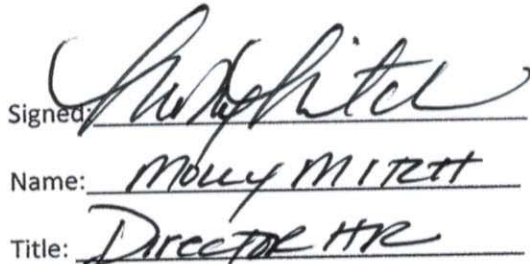 Signed:
Name: Molly MITCH
Title: DIRECTOR HR